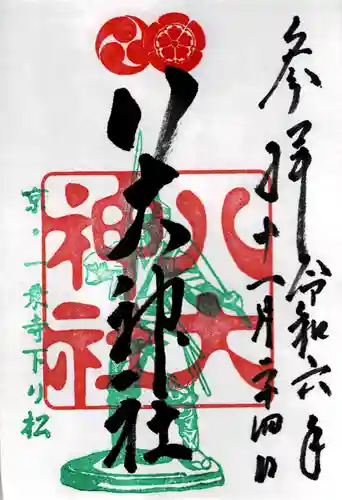 参拝 令和六年
十一月二十四日
八大神社
八大神社
京・一乗寺下り松